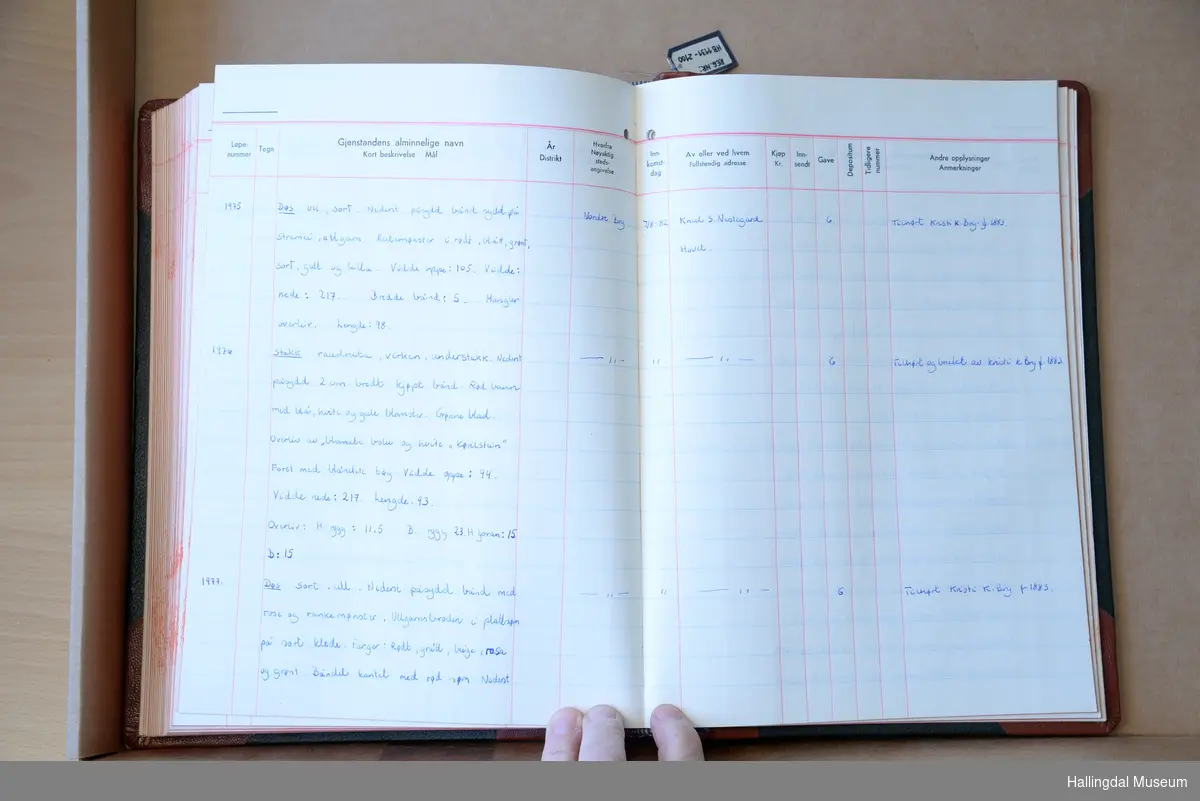 REG. NR.:
HB 1931 - 2100
Løpe-
nummer
Tegn
Gjenstandens alminnelige navn
Kort beskrivelse Mål
År
Distrikt
Hvorfra
Nøyaktig
steds-
angivelse
Inn-
komst-
dag
Av eller ved hvem
Fullstendig adresse
Kjøp
Kr.
Inn-
sendt
Gave
Depositum
Tidligere
nummer
Andre opplysninger
Anmerkninger
1975 Døs ull, sort. Nederst påsydd bånd sydd på
stramei, ullgarn. Rutemønster i rødt, blått, grønt,
sort, gult og lilla. Vidde oppe: 105. Vidde:
nede: 217. Bredde bånd: 5. Mangler
overliv. Lengde: 98.
Nordre Bry
7/8-82
Knud S. Nystogard
Hovet.
G
Tilhørt Kristi K. Bry f. 1883.
1976 Stakk raudmota, virken, understakk. Nederst
påsydd 2 cm. bredt kjøpt bånd. Rød bunn
med blå, hvite og gule blomster. Grønne blad.
Overliv av blomstrete og hvite "Kjolstein"
Foret med tøy. Vidde oppe: 94.
Vidde nede: 217. Lengde: 93.
Overliv: H. rygg: 11.5 B. rygg 23. H foran: 15
B: 15
— " —
"
— " —
G
Tilhørt og brukt av Kristi K. Bry f. 1883
1977. Døs sort, ull. Nederst påsydd bånd med
rose og rankemønster. Ullgarnsbroderi i plattsøm
på sort klede. Farger: Rødt, grått, beige, rosa
og grønt. Båndet kantet med rød søm. Nederst
— " —
"
— " —
G
Tilhørt Kristi K. Bry f. 1883.
Hallingdal Museum